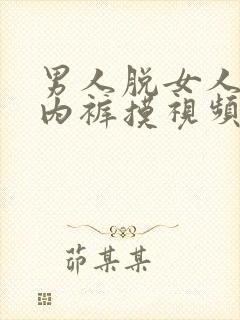 男人脱女人
内裤摸视频
茆某某